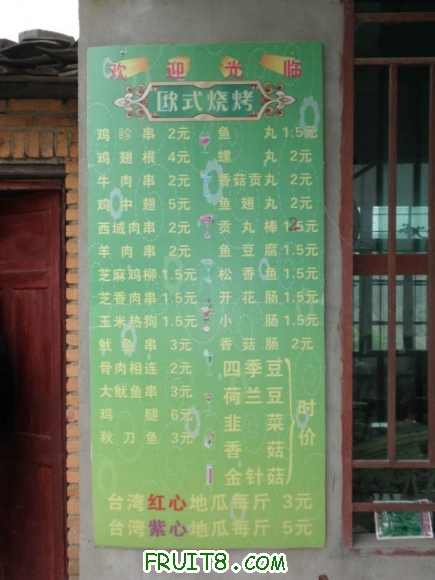 欢迎光临
欧式烧烤
鸡胗串 2元 鱼丸 1.5元
鸡翅根 4元 螺丸 2元
牛肉串 2元 香菇贡丸 2元
鸡中翅 5元 鱼翅丸 2元
西域肉串 2元 贡丸棒 2.5元
羊肉串 2元 鱼豆腐 1.5元
芝麻鸡柳 1.5元 松香鱼 1.5元
芝香肉串 1.5元 开花肠 1.5元
玉米热狗 1.5元 小肠 1.5元
鱿串 3元 香菇肠 2元
骨肉相连 2元 四季豆
大鱿鱼串 3元 荷兰豆
鸡腿 6元 韭菜
秋刀鱼 3元 香菇
金针菇
时价
台湾红心地瓜每斤 3元
台湾紫心地瓜每斤 5元
FRUIT8.COM